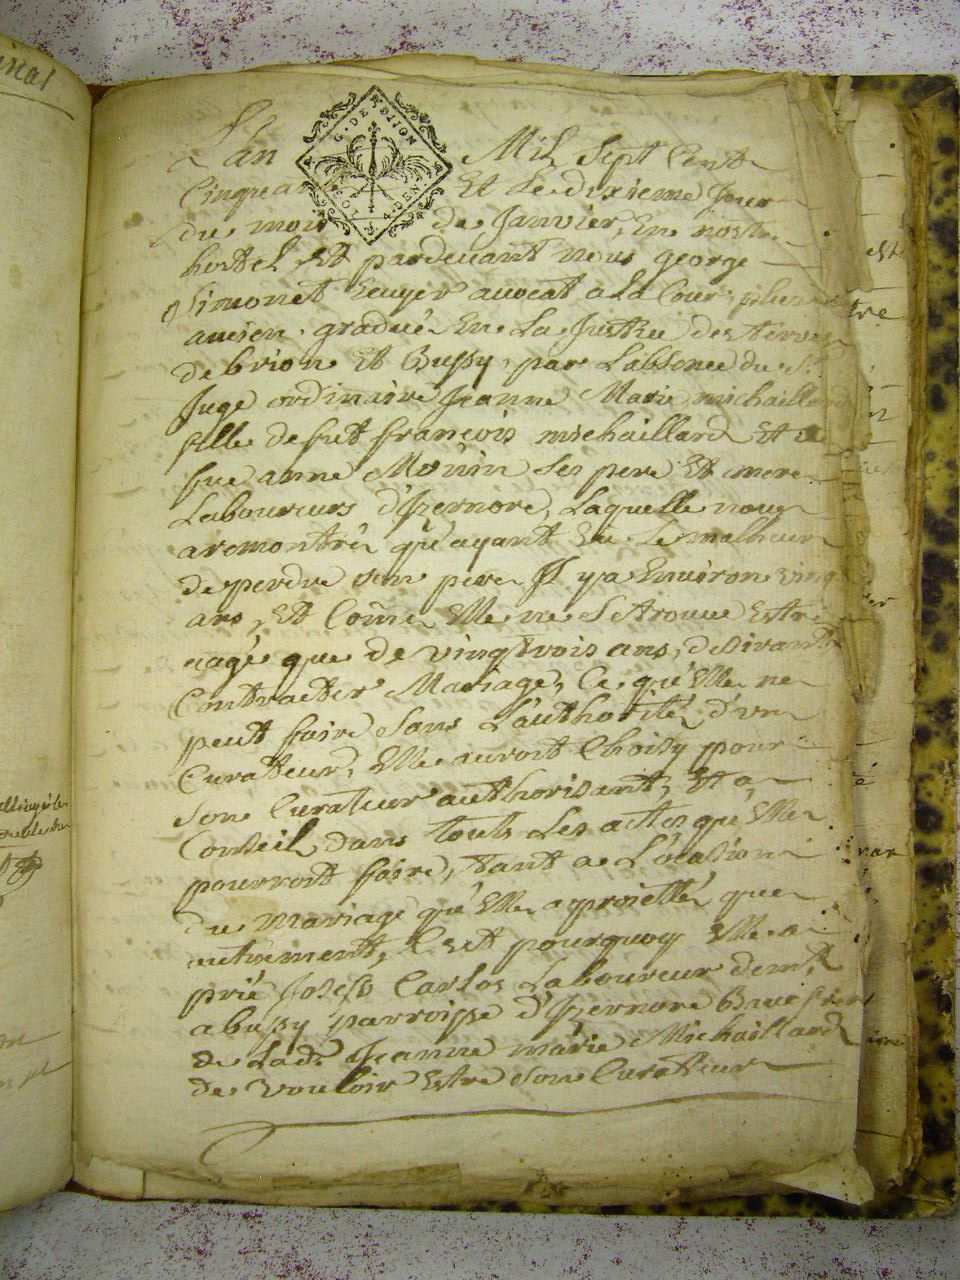 L'an Mil Sept Cent
Cinquante Et Le dixieme Jour
du mois de Janvier, En nostre
hostel Et pardevant nous george
Simonet Ecuyer avocat a La Cour, plus
ancien gradué En La Justice des terres
de brion Et Bussy, par Labsence du Sr.
Juge ordinaire Jeanne Marie michaillard
fille de feut françois michaillard Et de
fue anne Monin Ses pere Et mere
Laboureurs d'Izernore, Laquelle nous
aremontré qu'ayant Eu Le malheur
de perdre son pere Il y a Environ vingt
ans, Et Comme Elle ne Se trouve Estre
aagé que de vingt trois ans, desirant
Contracter Mariage, Ce qu'Elle ne
peut faire Sans L'authorité d'un
Curateur, Elle auroit Choisy pour
Son Curateur authorisant, Et a
Conseil dans touts Les actes qu'Elle
pourroit faire, tant a L'ocasion
du Mariage qu'Elle a projetté que
autrement, C'est pourquoy Elle a
prié Joseph Carlos Laboureur demt.
a bussy parroisse d'Izernore Beau frere
de Lade. Jeanne marie Michaillard
de Vouloir Estre Son Curateur
G. DE DIJON
2. SOLS 4. DEN